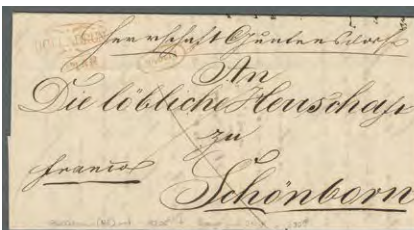 Herrschaft Guntersdorf
An
Die löbliche Herrschaft
zu
franco
Schönborn